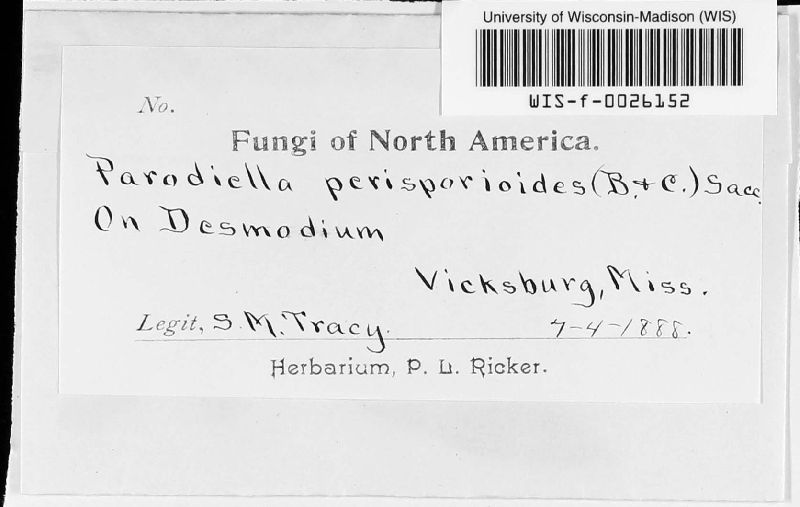 University of Wisconsin-Madison (WIS)
WIS-f-0026152
No.
Fungi of North America.
Parodiella perisporioides (B. + C.) Sacc.
On Desmodium
Vicksburg, Miss.
Legit, S. M. Tracy. 7-4-1888.
Herbarium, P. L. Ricker.